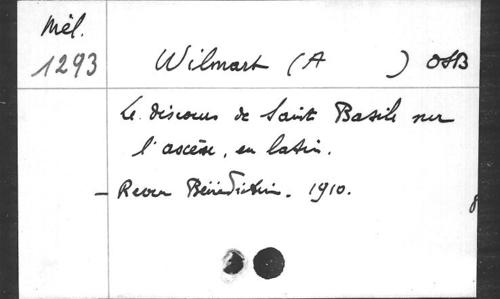 Mél.
1293
Wilmart (A ) OSB
Le discours de Saint Basile sur
l'ascèse, en latin.
– Revue Bénédictine. 1910.